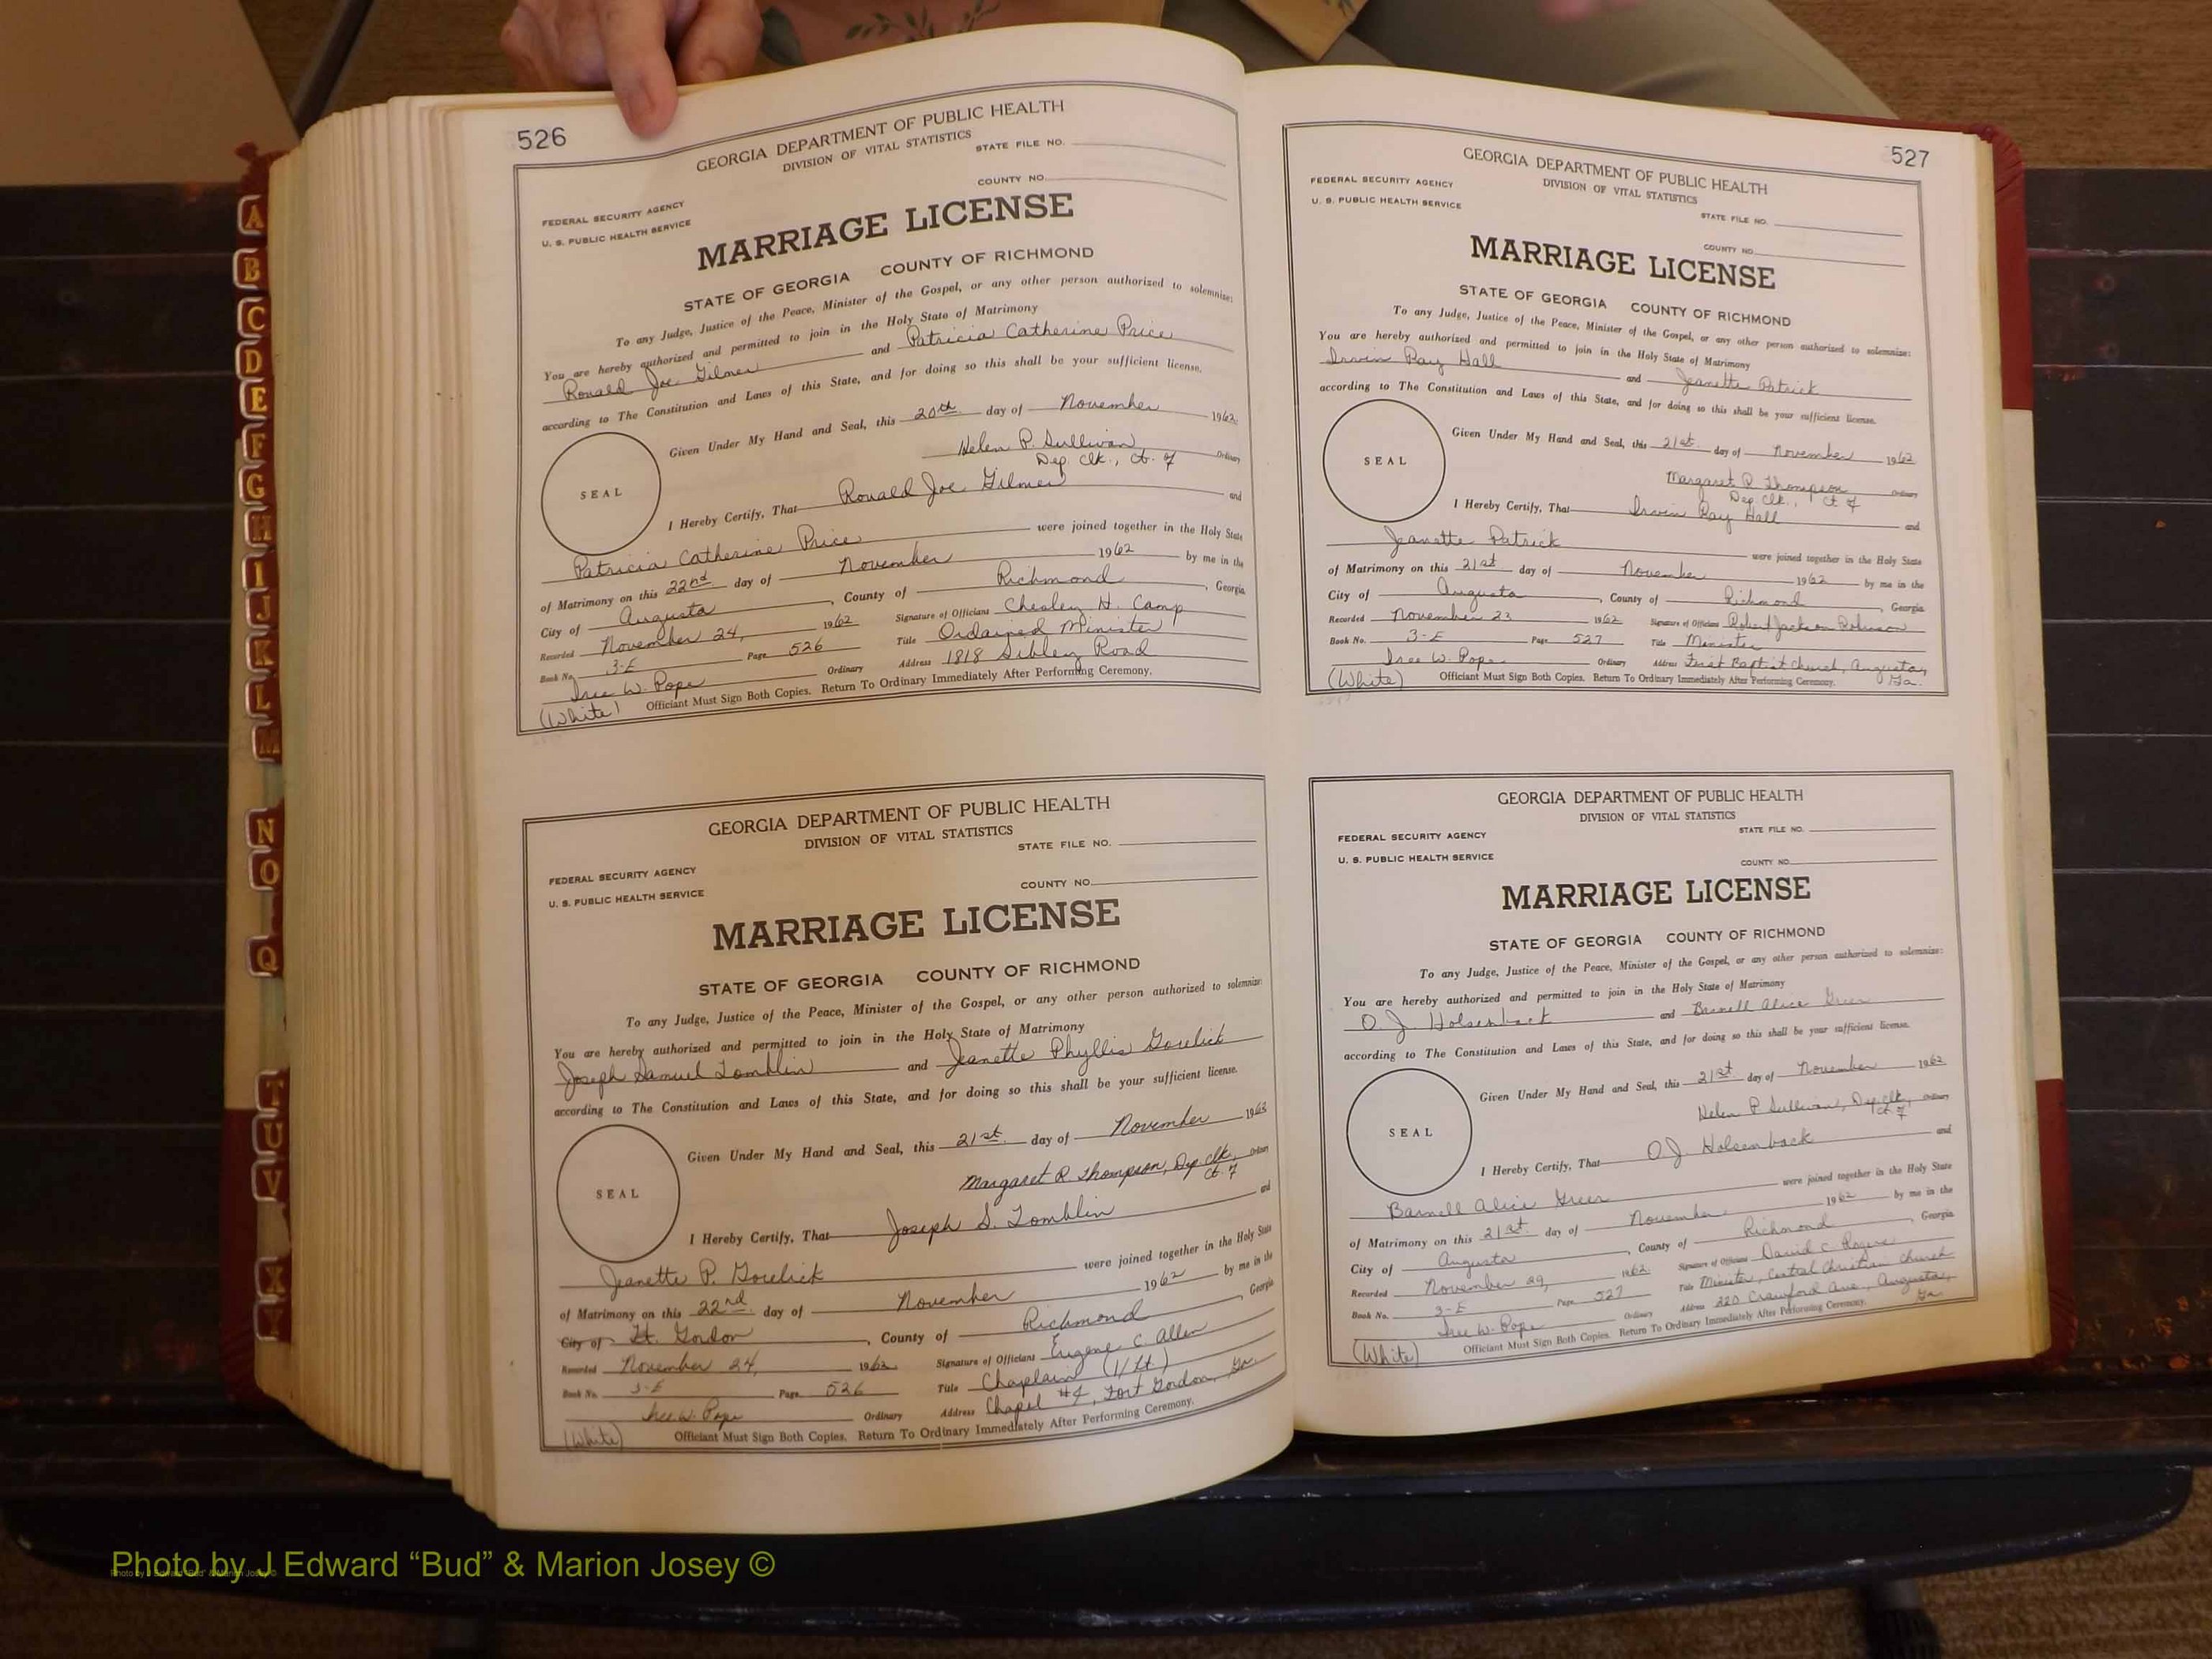 526
GEORGIA DEPARTMENT OF PUBLIC HEALTH
DIVISION OF VITAL STATISTICS
STATE FILE NO.
COUNTY NO.
FEDERAL SECURITY AGENCY
U. S. PUBLIC HEALTH SERVICE
MARRIAGE LICENSE
STATE OF GEORGIA COUNTY OF RICHMOND
To any Judge, Justice of the Peace, Minister of the Gospel, or any other person authorized to solemnize:
You are hereby authorized and permitted to join in the Holy State of Matrimony
Ronald Joe Gilmer and Patricia Catherine Price
according to The Constitution and Laws of this State, and for doing so this shall be your sufficient license.
Given Under My Hand and Seal, this 20th day of November 1962
Helen P. Sullivan Ordinary
Dep. Clk., Ct. of
SEAL
I Hereby Certify, That Ronald Joe Gilmer and
Patricia Catherine Price were joined together in the Holy State
of Matrimony on this 22nd day of November 1962 by me in the
City of Augusta, County of Richmond, Georgia
Recorded November 24, 1962 Signature of Officiant Chesley H. Camp
Book No. 3-E Page 526 Title Ordained Minister
Iree W. Pope Ordinary Address 1818 Sibley Road
(White) Officiant Must Sign Both Copies. Return To Ordinary Immediately After Performing Ceremony.
GEORGIA DEPARTMENT OF PUBLIC HEALTH
DIVISION OF VITAL STATISTICS
STATE FILE NO.
COUNTY NO.
FEDERAL SECURITY AGENCY
U. S. PUBLIC HEALTH SERVICE
MARRIAGE LICENSE
STATE OF GEORGIA COUNTY OF RICHMOND
To any Judge, Justice of the Peace, Minister of the Gospel, or any other person authorized to solemnize:
You are hereby authorized and permitted to join in the Holy State of Matrimony
Joseph Samuel Tomblin and Jeanette Phyllis Gorelick
according to The Constitution and Laws of this State, and for doing so this shall be your sufficient license.
Given Under My Hand and Seal, this 21st day of November 1962
Margaret R. Thompson, Dep Clk, Ordinary
Ct. of
SEAL
I Hereby Certify, That Joseph S. Tomblin and
Jeanette P. Gorelick were joined together in the Holy State
of Matrimony on this 22nd day of November 1962 by me in the
City of Ft. Gordon, County of Richmond Georgia
Recorded November 24, 1962 Signature of Officiant Eugene C Allen
Book No. 3-E Page 526 Title Chaplain (1/Lt)
Iree W. Pope Ordinary Address Chapel #4, Fort Gordon, Ga.
(White) Officiant Must Sign Both Copies. Return To Ordinary Immediately After Performing Ceremony.
527
GEORGIA DEPARTMENT OF PUBLIC HEALTH
DIVISION OF VITAL STATISTICS
STATE FILE NO.
COUNTY NO.
FEDERAL SECURITY AGENCY
U. S. PUBLIC HEALTH SERVICE
MARRIAGE LICENSE
STATE OF GEORGIA COUNTY OF RICHMOND
To any Judge, Justice of the Peace, Minister of the Gospel, or any other person authorized to solemnize:
You are hereby authorized and permitted to join in the Holy State of Matrimony
Irwin Ray Hall and Jeanette Patrick
according to The Constitution and Laws of this State, and for doing so this shall be your sufficient license.
Given Under My Hand and Seal, this 21st day of November 1962
Margaret R Thompson Ordinary
Dep Clk., Ct of
SEAL
I Hereby Certify, That Irwin Ray Hall and
Jeanette Patrick were joined together in the Holy State
of Matrimony on this 21st day of November 1962 by me in the
City of Augusta, County of Richmond, Georgia
Recorded November 23 1962 Signature of Officiant Robert Jackson Robinson
Book No. 3-E Page 527 Title Minister
Iree W. Pope Ordinary Address First Baptist Church, Augusta, Ga.
(White) Officiant Must Sign Both Copies. Return To Ordinary Immediately After Performing Ceremony.
GEORGIA DEPARTMENT OF PUBLIC HEALTH
DIVISION OF VITAL STATISTICS
STATE FILE NO.
COUNTY NO.
FEDERAL SECURITY AGENCY
U. S. PUBLIC HEALTH SERVICE
MARRIAGE LICENSE
STATE OF GEORGIA COUNTY OF RICHMOND
To any Judge, Justice of the Peace, Minister of the Gospel, or any other person authorized to solemnize:
You are hereby authorized and permitted to join in the Holy State of Matrimony
O. J. Holsenback and Barnell Alice Greer
according to The Constitution and Laws of this State, and for doing so this shall be your sufficient license.
Given Under My Hand and Seal, this 21st day of November 1962
Helen P Sullivan, Dep. Clk, Ordinary
Ct of
SEAL
I Hereby Certify, That O.J. Holsenback and
Barnell Alice Greer were joined together in the Holy State
of Matrimony on this 21st day of November 1962 by me in the
City of Augusta, County of Richmond, Georgia
Recorded November 29, 1962 Signature of Officiant David C. Rogers
Book No. 3-E Page 527 Title Minister, Central Christian Church
Iree W. Pope Ordinary Address 220 Crawford Ave, Augusta, Ga
(White) Officiant Must Sign Both Copies. Return To Ordinary Immediately After Performing Ceremony.
A
B
C
D
E
F
G
H
I
J
K
L
M
N
O
Q
T
U
V
X
Y
Photo by J Edward “Bud” & Marion Josey ©
Photo by J Edward "Bud" & Marion Josey ©